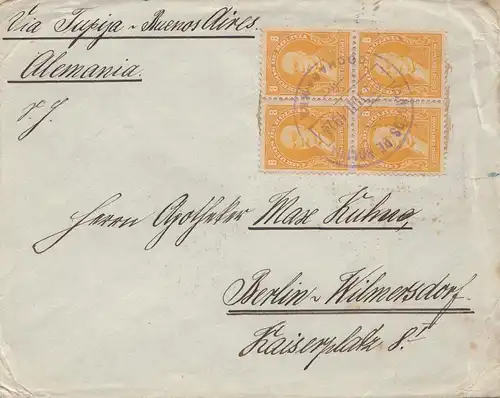 Via Tupiza - Buenos Aires.
Alemania.
8 8
8 8
Herrn Apotheker Max Kühne,
Berlin - Wilmersdorf.
Kaiserplatz 8I